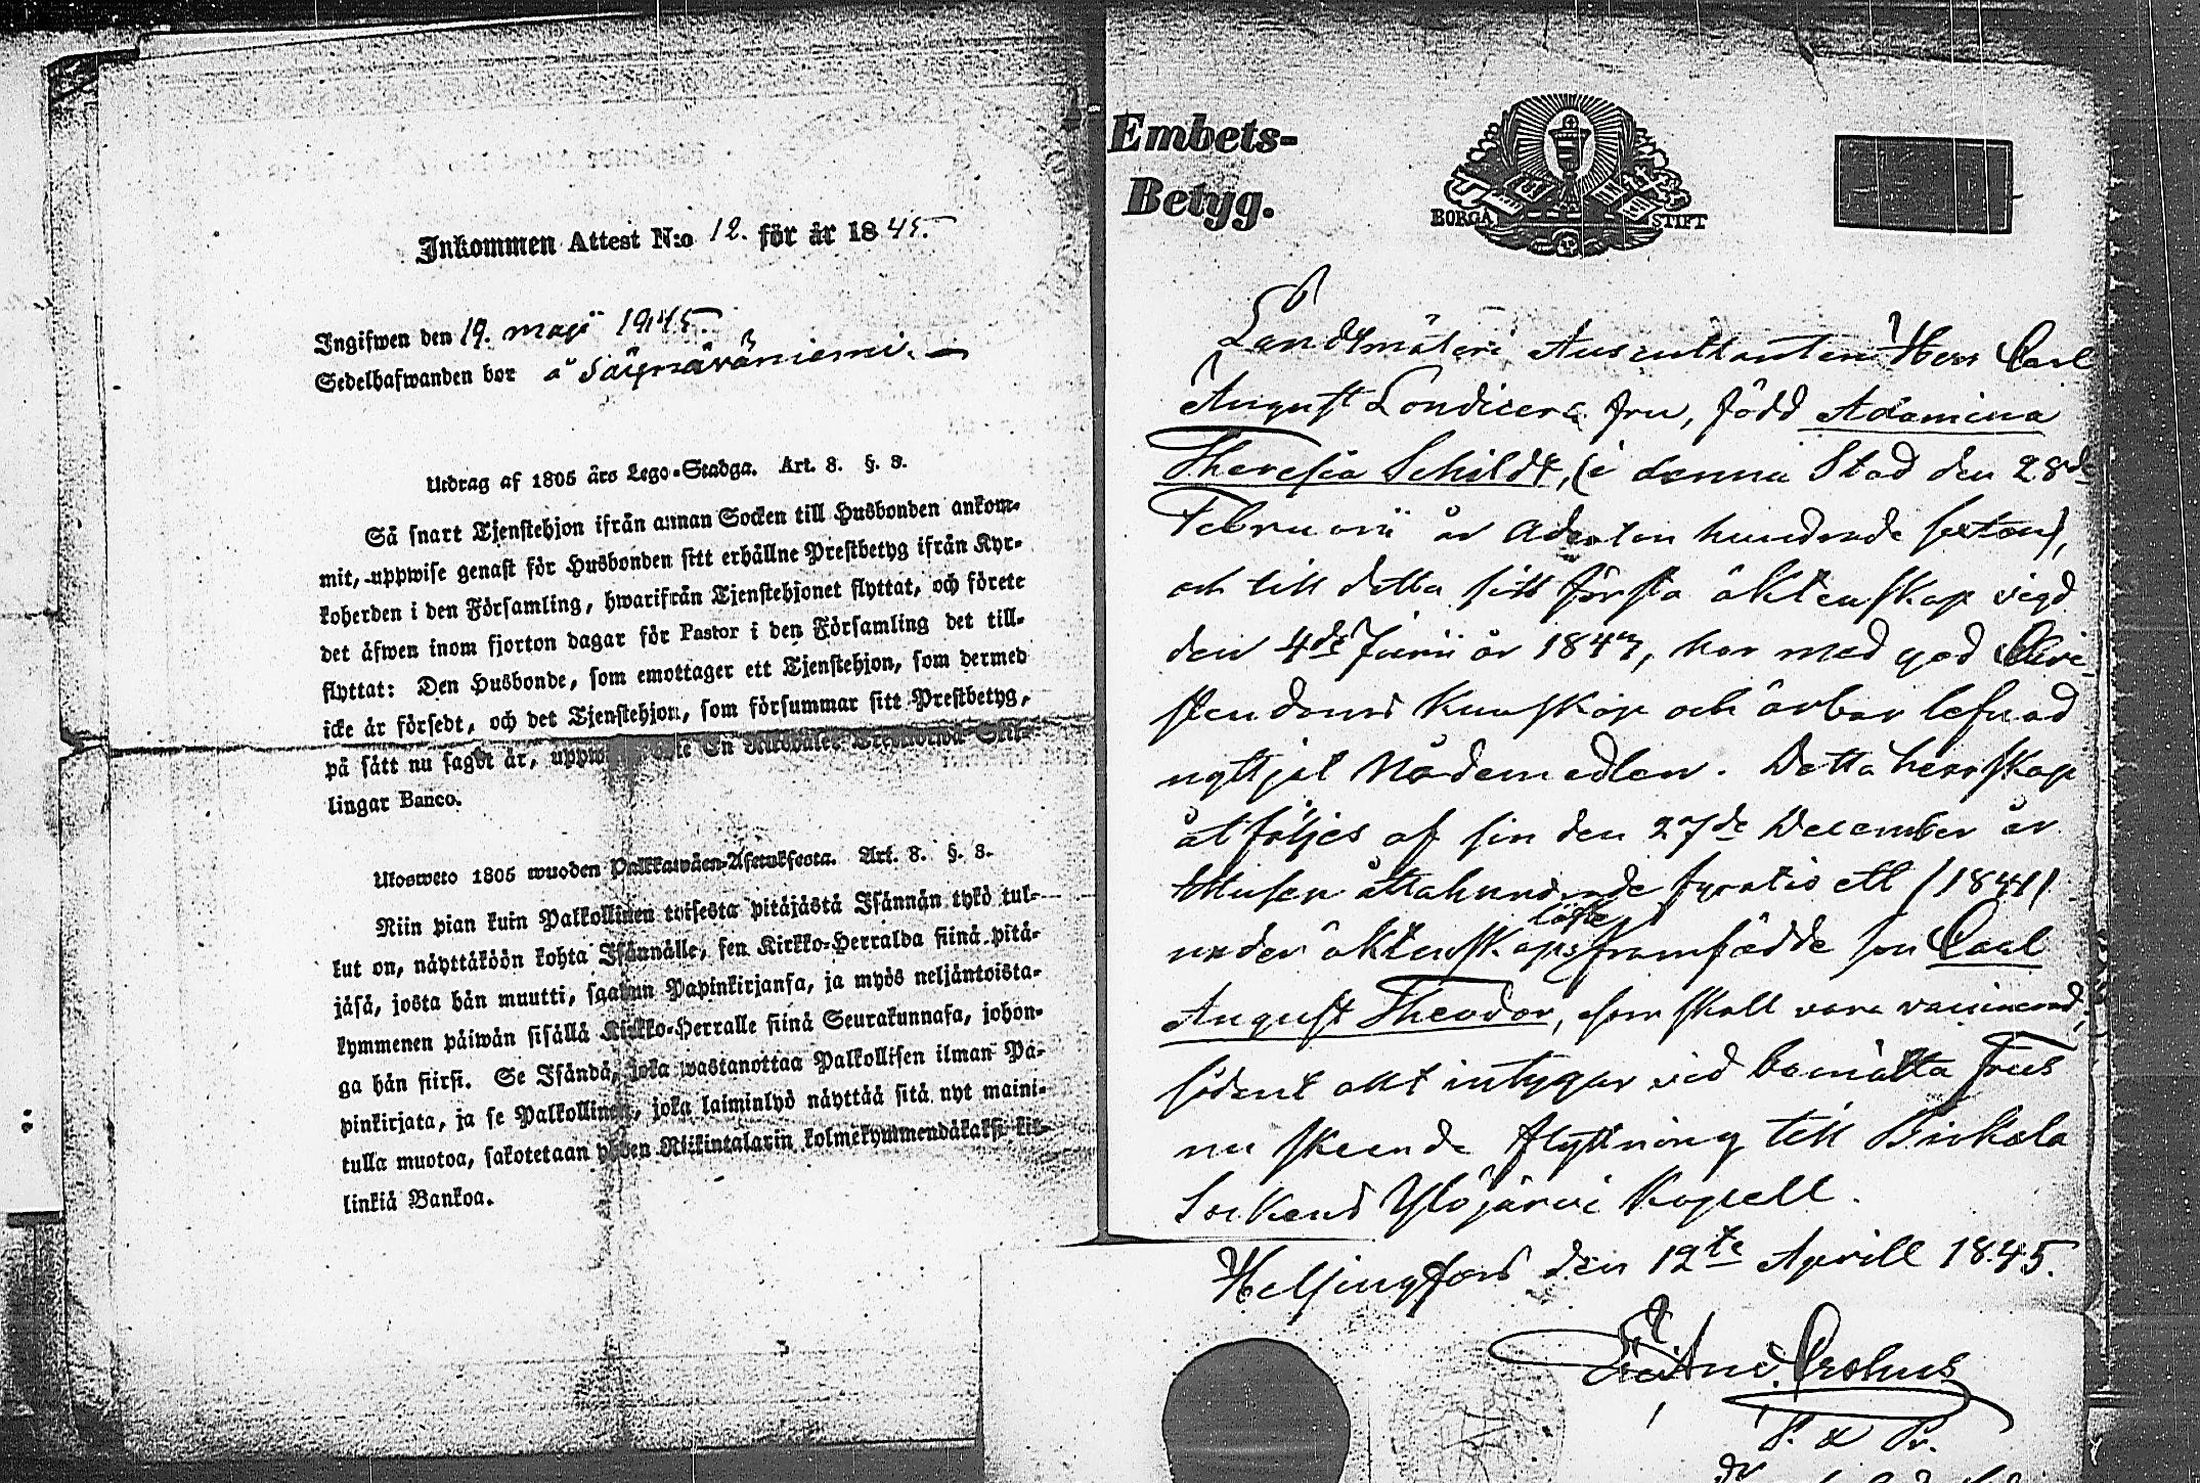 Inkommen Attest N:o 12. för år 1845.
Ingifwen den 19. maji 1845.
Sedelhafwanden bor å Säynäväniemi.
Utdrag af 1805 års Lego-Stadga. Art. 8. §. 8.
Så snart Tjenstehjon ifrån annan Socken till Husbonden ankom-
mit, uppwise genast för Husbonden sitt erhållne Prestbetyg ifrån Kyr-
koherden i den Församling, hwarifrån Tjenstehjonet flyttat, och förete
det äfwen inom fjorton dagar för Pastor i den Församling det till-
flyttat: Den Husbonde, som emottager ett Tjenstehjon, som dermed
icke är försedt, och det Tjenstehjon, som försummar sitt Prestbetyg,
på sätt nu sagdt är, En
lingar Banco.
Ulosweto 1805 wuoden Palkkawäen-Asetuksesta. Art. 8. §. 8.
Niin pian kuin Palkollinen toisesta pitäjästä Isännän tykö tul-
kut on, näyttäköön kohta Isännälle, sen Kirkko-Herralda siinä pitä-
jäsä, josta hän muutti, saadun Papinkirjansa, ja myös neljäntoista-
kymmenen päiwän sisällä Kirkko-Herralle siinä Seurakunnasa, johon-
ga hän siirsi. Se Isändä, joka wastanottaa Palkollisen ilman Pa-
pinkirjata, ja se Palkollinen, joka laiminlyö näyttää sitä nyt maini-
tulla muotoa, sakotetaan yhden Riikintalarin kolmekymmendäkaksi kil-
linkiä Bankoa.
Embets-
Betyg.
BORGÅ STIFT
Landtmäteri Auscultanten Herr Carl
August Londicers fru, född Adamina
Theresia Schildt, (i denna Stad den 28de
Februarii år Aderton hundrade sexton),
och till detta sitt första äktenskap vigd
den 4de Junii år 1843, har med god Chri-
stendoms kunskap och ärbar lefnad
nyttjat Nådemedlen. Detta herrskap
åtföljes af sin den 27de December år
ettusen åttahundrade fyratio ett (1841)
under äktenskaps löfte framfödde son Carl
August Theodor, som skall vara vaccinerad,
sådant allt intygar vid bemälta Frus
nu skeende flyttning till Birkala
Sockens Ylöjärvi Kapell.
Helsingfors den 12te Aprill 1845.
Crohns